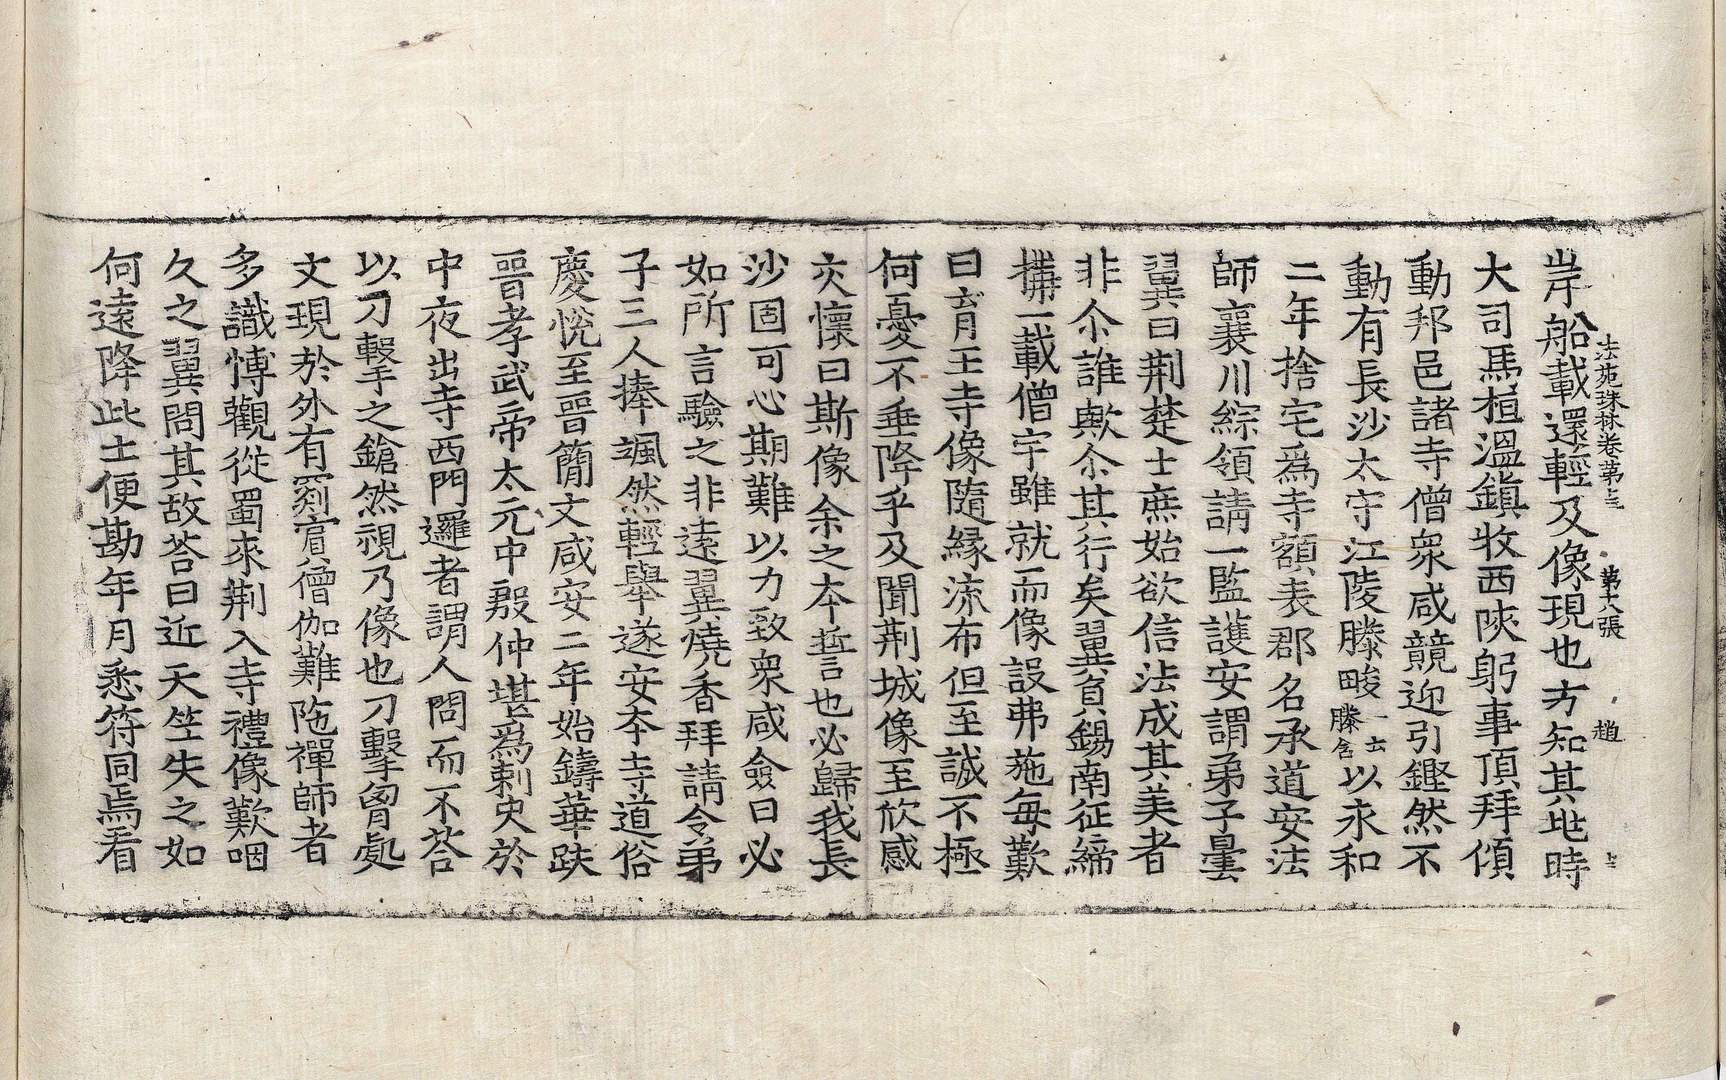 法苑珠林卷第十三　第十八張　趙
岸船載還輕及像現也方知其地時
大司馬桓溫鎮牧西陝躬事頂拜傾
動邦邑諸寺僧衆咸競迎引鏗然不
動有長沙太守江陵滕畯一云滕含以永和
二年捨宅爲寺額表郡名承道安法
師襄川綜領請一監護安謂弟子曇
翼曰荆楚士庶始欲信法成其美者
非尒誰歟尒其行矣翼負錫南征締
搆一載僧宇雖就而像設弗施每歎
曰育王寺像隨緣流布但至誠不極
何憂不垂降乎及聞荆城像至欣感
交懷曰斯像余之本誓也必歸我長
沙固可心期難以力致衆咸僉曰必
如所言驗之非遠翼燒香拜請令弟
子三人捧颯然輕舉遂安本寺道俗
慶悅至晉簡文咸安二年始鑄華趺
晉孝武帝太元中殷仲堪爲刺史於
中夜出寺西門邏者謂人問而不荅
以刀擊之鎗然視乃像也刀擊匈處
文現於外有罽賓僧伽難陁禪師者
多識博觀從蜀來荆入寺禮像歎咽
久之翼問其故荅曰近天竺失之如
何遠降此土便勘年月悉符同焉看